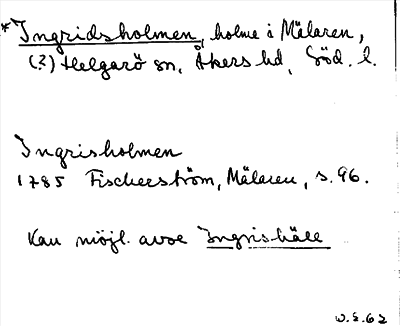 *Ingridsholmen, holme i Mälaren,
(?) Helgarö sn, Åkers hd, Söd. l.
Ingrisholmen
1785 Fischerström, Mälaren, s. 96.
Kan möjl. avse Ingrishäll
W.S. 62